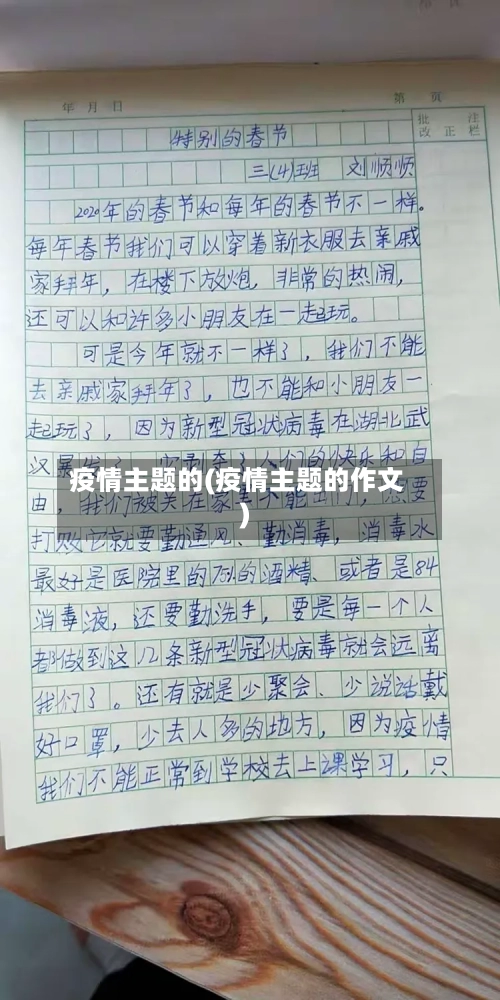 年 月 日
第 页
批 注
改 正 栏
特别的春节
三(4)班 刘顺顺
2020年的春节和每年的春节不一样。
每年春节我们可以穿着新衣服去亲戚
家拜年，在楼下放炮，非常的热闹，
还可以和许多小朋友在一起玩。
可是今年就不一样了，我们不能
去亲戚家拜年了，也不能和小朋友一
起玩了，因为新型冠状病毒在湖北武
汉 人们的快乐和自
疫情主题的(疫情主题的作文
由，我们被关在家里不能出门，想要
)
打败它就要勤通风、勤消毒，消毒水
最好是医院里的75%的酒精、或者是84
消毒液，还要勤洗手，要是每一个人
都做到这几条新型冠状病毒就会远离
我们了。还有就是少聚会、少说话戴
好口罩，少去人多的地方，因为疫情
我们不能正常到学校去上课学习，只